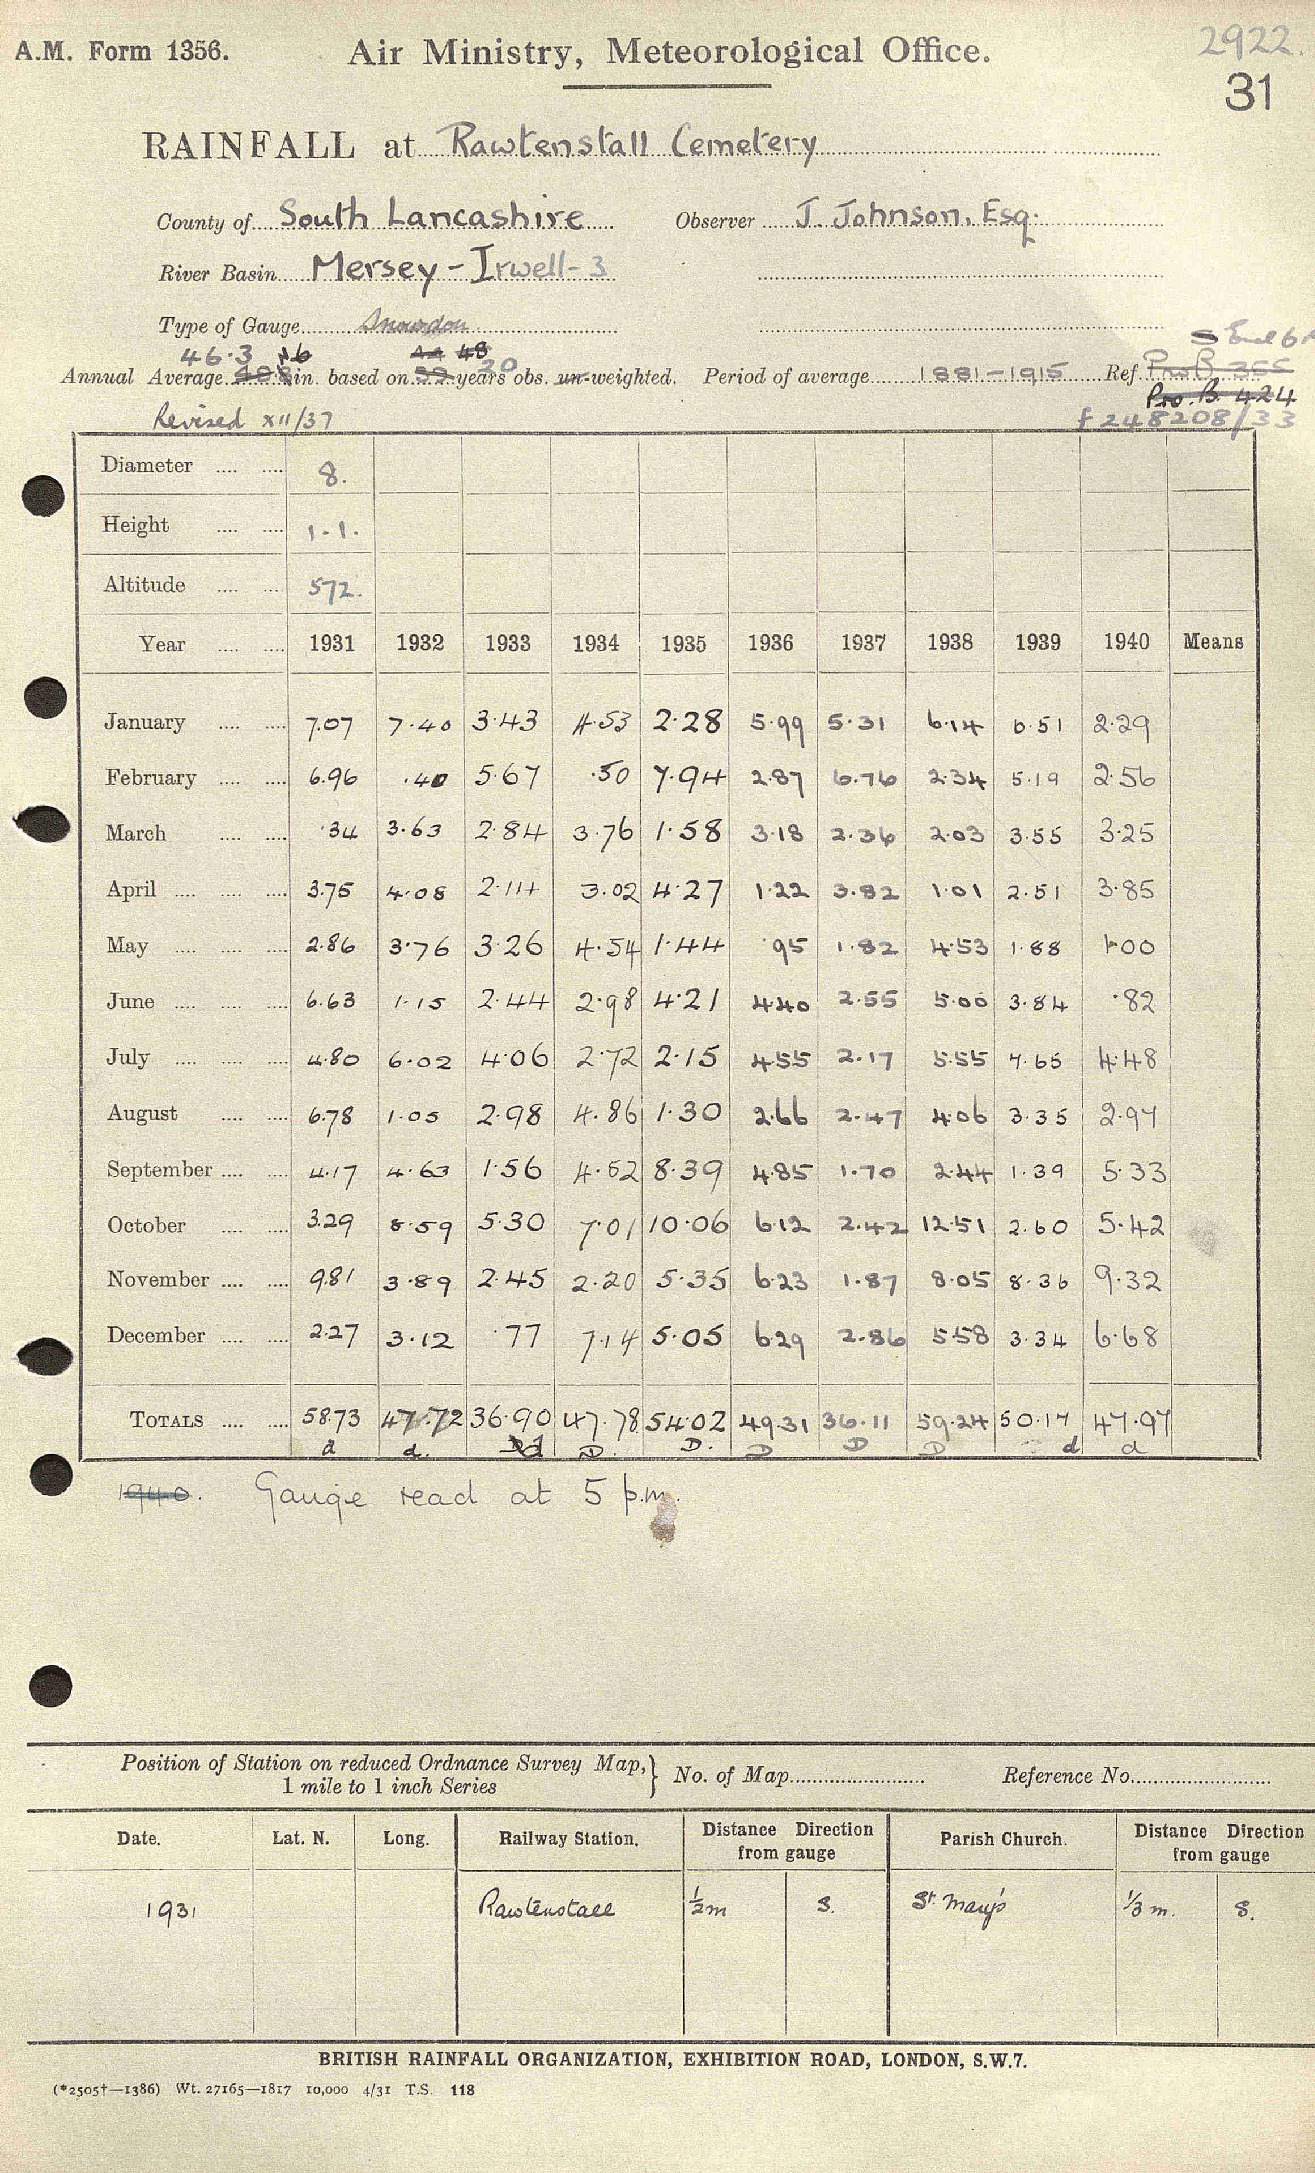 2922.
A.M. Form 1356. Air Ministry, Meteorological Office.
31
RAINFALL at Rawtenstall Cemetery
County of South Lancashire Observer J. Johnson, Esq.
River Basin Mersey - Irwell - 3
Type of Gauge Snowdon
46.3
Annual Average in. based on 20 years obs. un-weighted. Period of average 1881-1915 Ref.
Pro. B. 424
Revised XII/37 f 248208/33
Diameter 8.
Height 1.1.
Altitude 572.
Year 1931 1932 1933 1934 1935 1936 1937 1938 1939 1940 Means
January 7.07 7.40 3.43 4.53 2.28 5.99 5.31 6.14 6.51 2.29
February 6.96 .40 5.67 .50 7.94 2.87 6.76 2.34 5.19 2.56
March .34 3.63 2.84 3.76 1.58 3.18 2.36 2.03 3.55 3.25
April 3.75 4.08 2.14 3.02 4.27 1.22 3.82 1.01 2.51 3.85
May 2.86 3.76 3.26 4.54 1.44 .95 1.82 4.53 1.88 1.00
June 6.63 1.15 2.44 2.98 4.21 4.40 2.55 5.00 3.84 .82
July 4.80 6.02 4.06 2.72 2.15 4.55 2.17 5.55 7.65 4.48
August 6.78 1.05 2.98 4.86 1.30 2.66 2.47 4.06 3.35 2.97
September 4.17 4.63 1.56 4.52 8.39 4.85 1.70 2.44 1.39 5.33
October 3.29 8.59 5.30 7.01 10.06 6.12 2.42 12.51 2.60 5.42
November 9.81 3.89 2.45 2.20 5.35 6.23 1.87 8.05 8.36 9.32
December 2.27 3.12 .77 7.14 5.05 6.29 2.86 5.58 3.34 6.68
TOTALS 58.73 47.72 36.90 47.78 54.02 49.31 36.11 59.24 50.17 47.97
d d. d D. D. D D D d d
1940. Gauge read at 5 p.m.
Position of Station on reduced Ordnance Survey Map, 1 mile to 1 inch Series } No. of Map Reference No.
Date. Lat. N. Long. Railway Station. Distance Direction from gauge Parish Church. Distance Direction from gauge
1931 Rawtenstall ½m S. St. Mary's ⅓ m. S.
BRITISH RAINFALL ORGANIZATION, EXHIBITION ROAD, LONDON, S.W.7.
(*2505†—1386) Wt. 27165—1817 10,000 4/31 T.S. 118